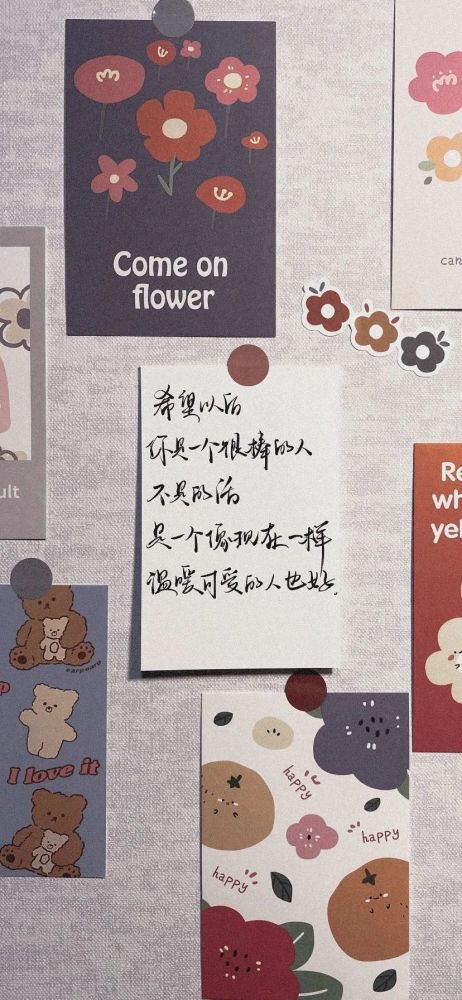 Come on
flower
can
希望以后
你是一个很棒的人
不是的话
是一个像现在一样
温暖可爱的人也好.
ult
Re
wh
yel
I love it
happy
happy
happy